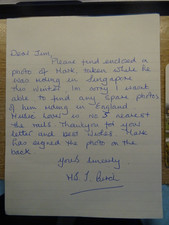 Dear Jim,
Please find enclosed a
photo of Mark taken where he
was riding in Singapore
this winter. I'm sorry I wasnt
able to find any spare photos
of him riding in England
Mark's horse is no 5 nearest
the rails. Thankyou for your
letter and best wishes. Mark
has signed the photo on the
back.
Yours sincerely